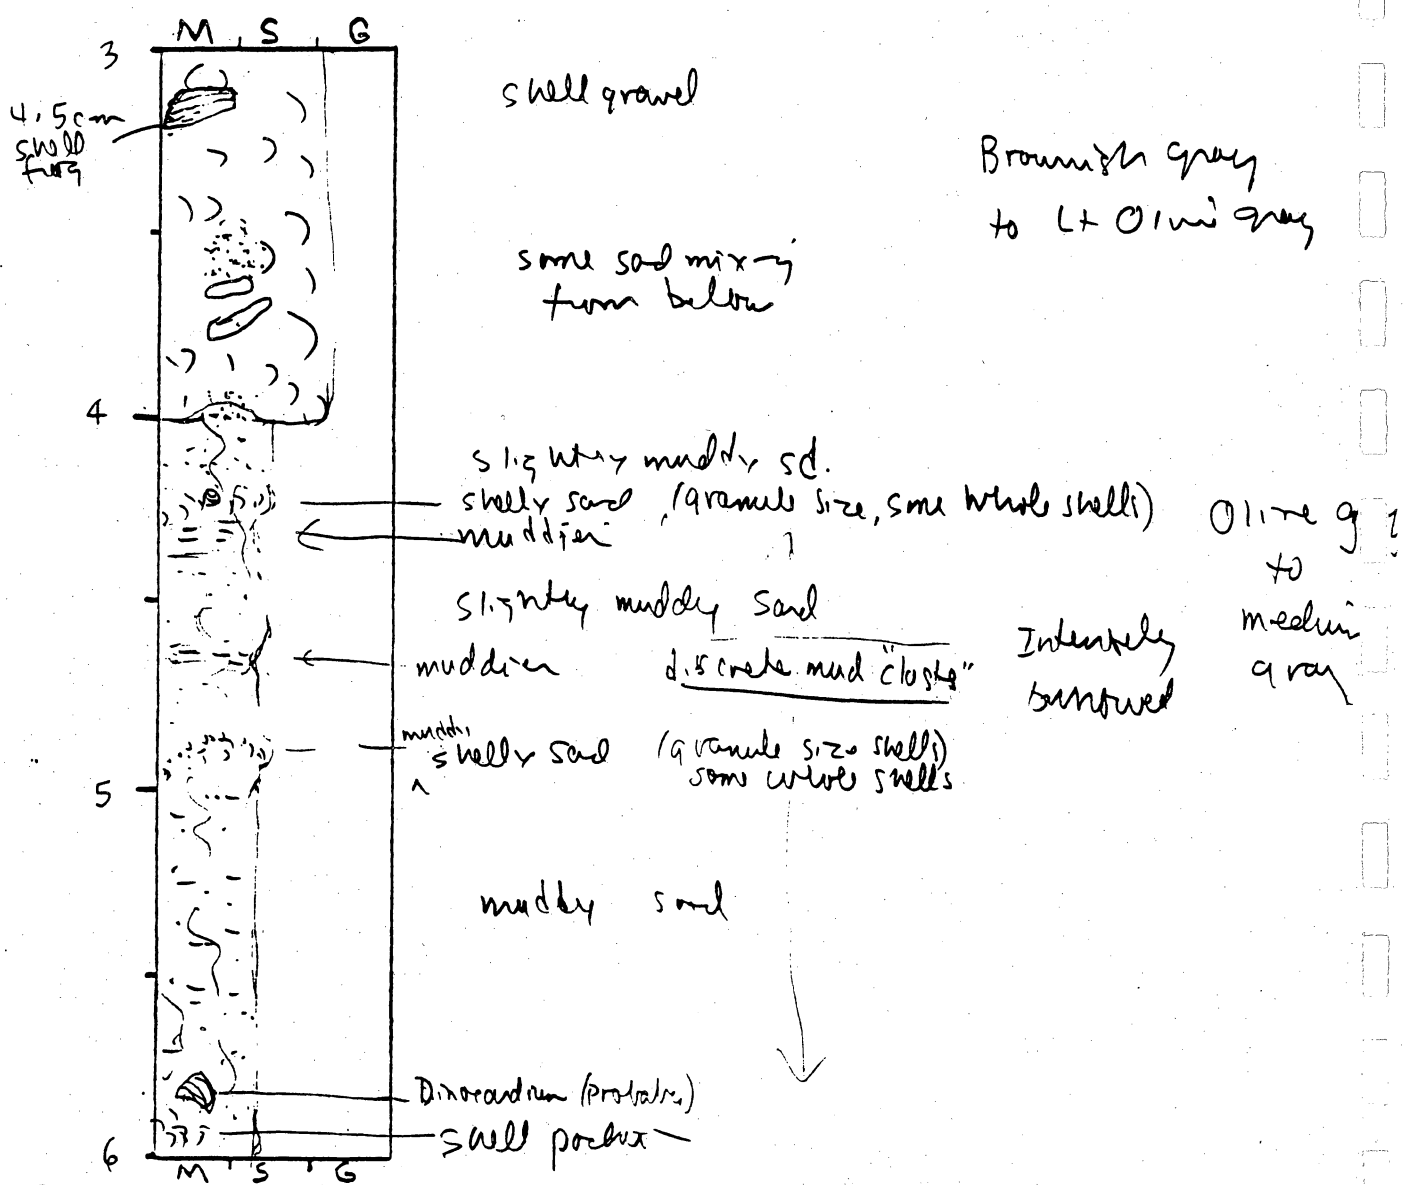 M S G
3
shell gravel
4.5cm
shell
frag
Brownish gray
to Lt Olive gray
some sad mixing
from below
4
slightly muddy sd.
shelly sand (granule size, some whole shells)
muddier
Olive g
to
medium
gray
slightly muddy sand
muddier
discrete mud "clasts"
Intensely
burrowed
muddy
shelly sand (granule size shells)
some whole shells
^
5
muddy sand
Dinocardium (probable)
shell pocket
6
M S G